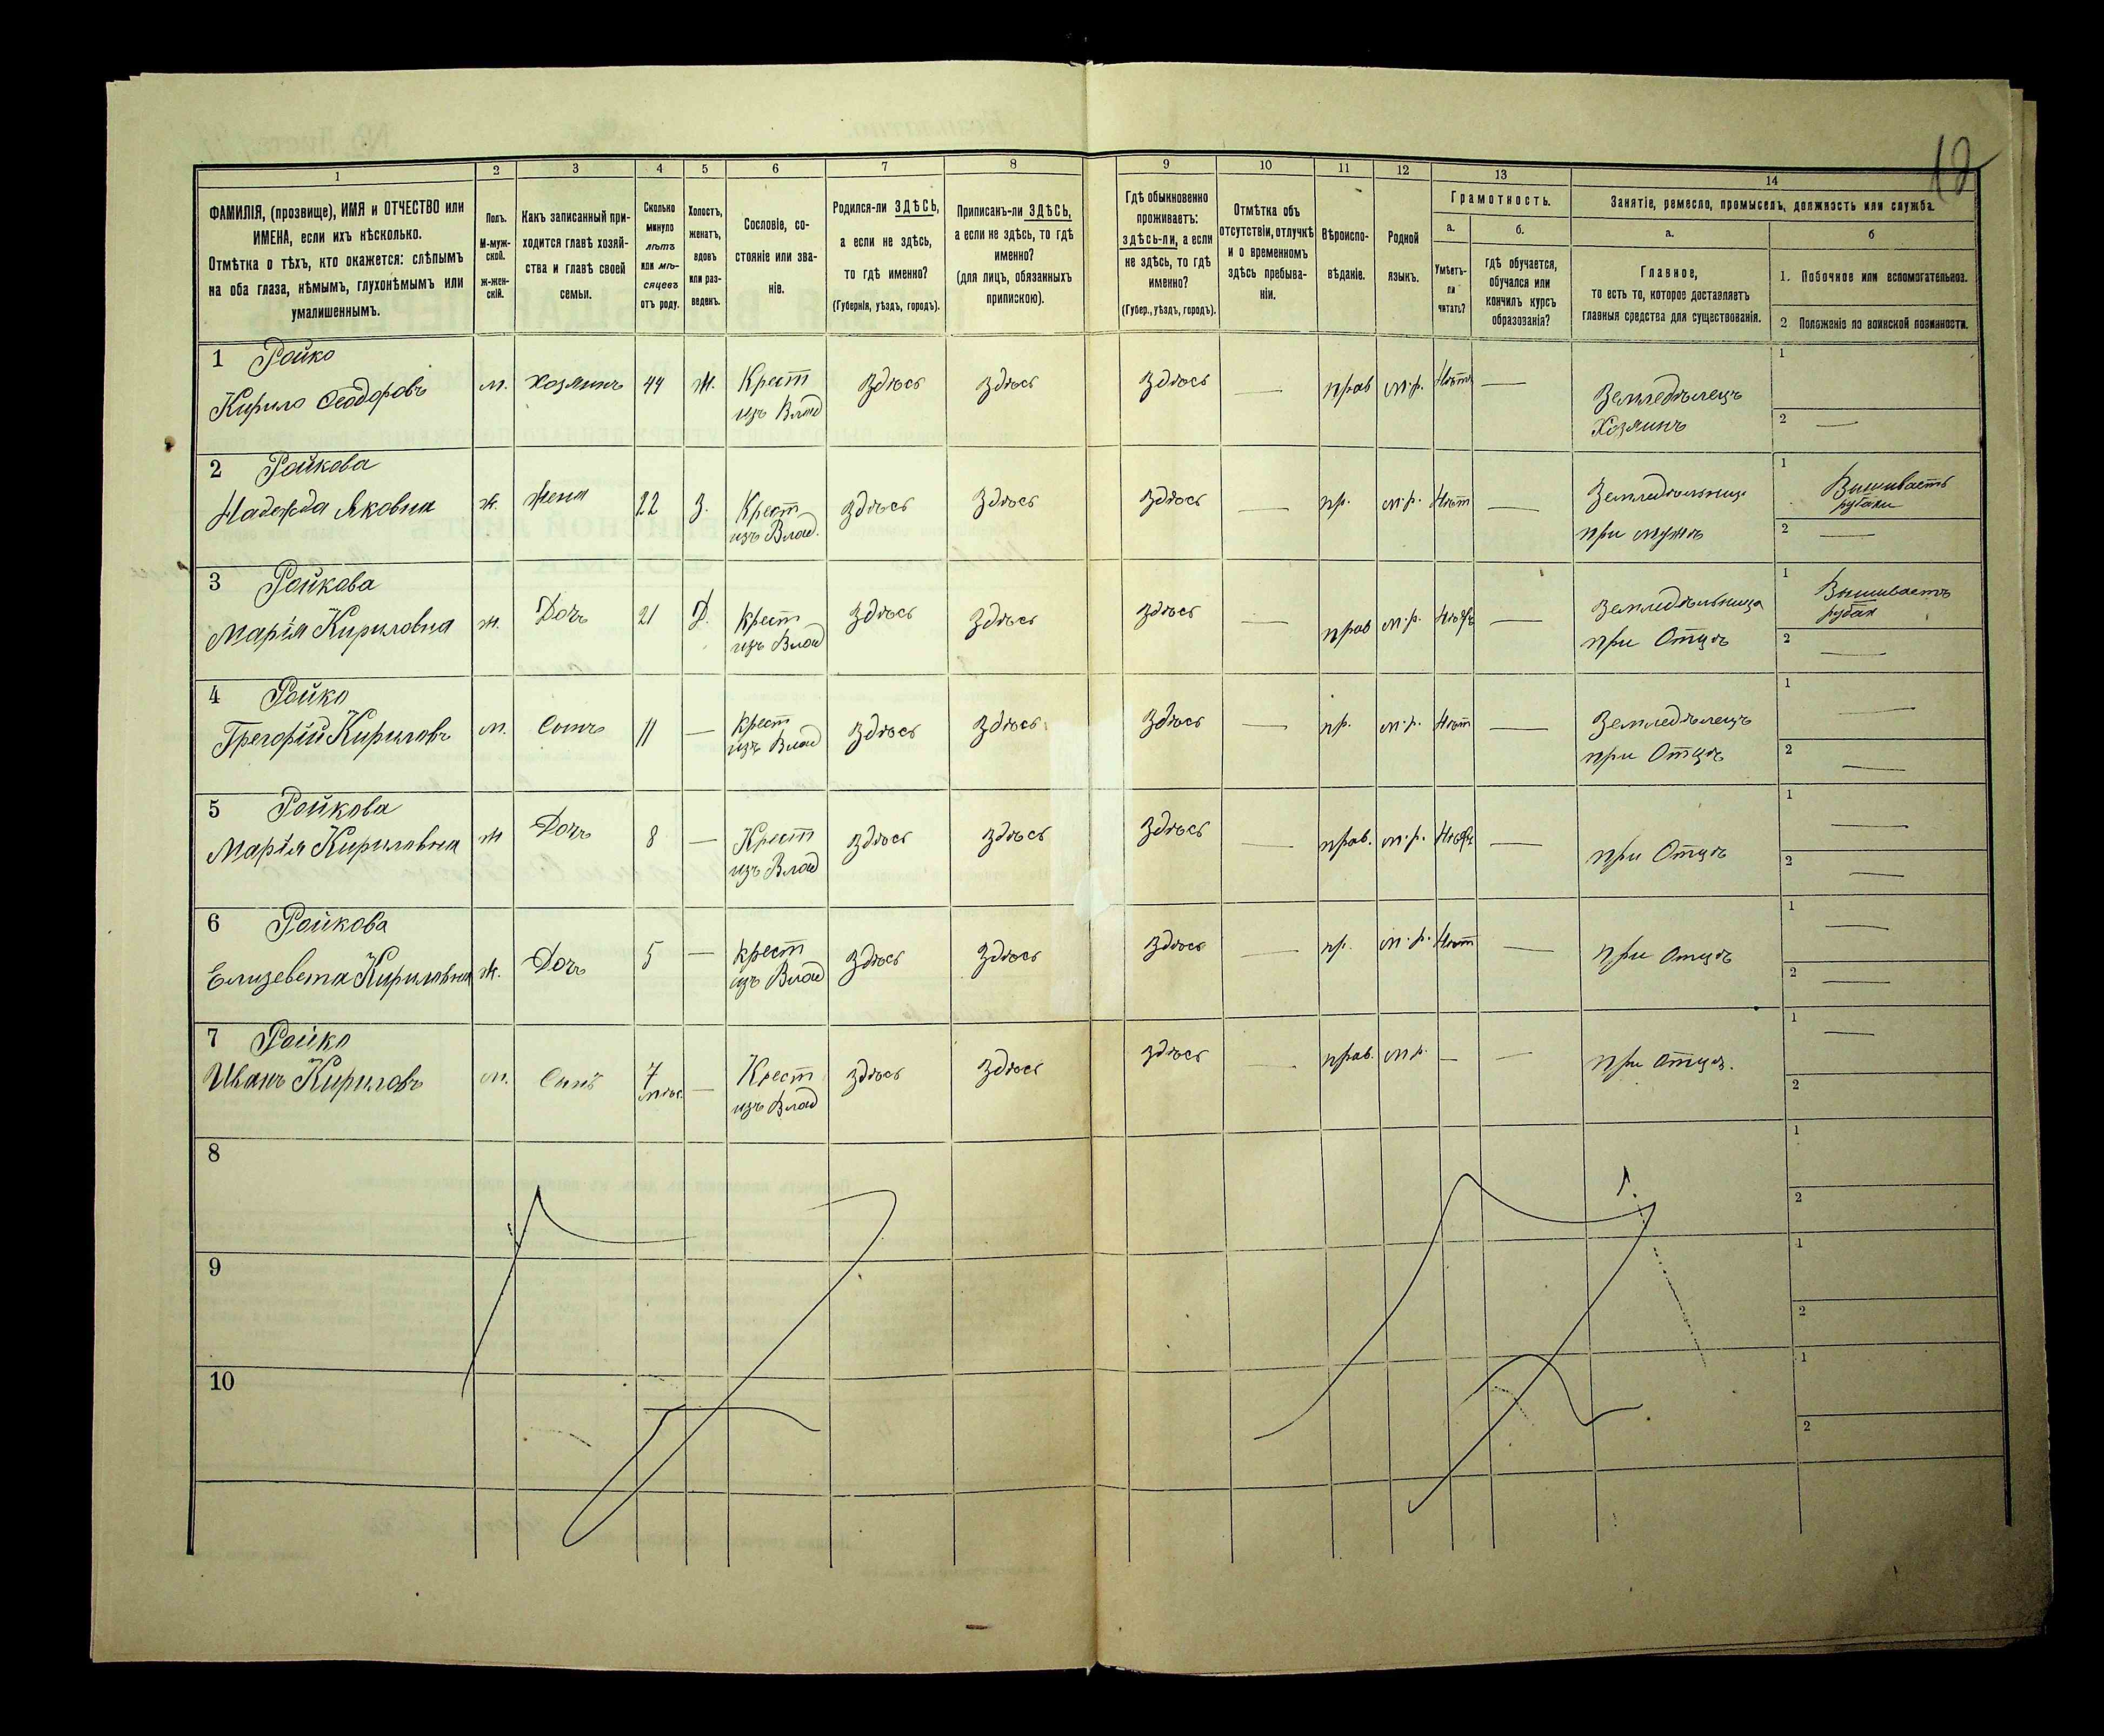 12
1 2 3 4 5 6 7 8 9 10 11 12 13 14
ФАМИЛІЯ, (прозвище), ИМЯ и ОТЧЕСТВО или
ИМЕНА, если ихъ нѣсколько.
Отмѣтка о тѣхъ, кто окажется: слѣпымъ
на оба глаза, нѣмымъ, глухонѣмымъ или
умалишеннымъ.
Полъ.
М-муж-
ской.
ж-жен-
скій.
Какъ записанный при-
ходится главѣ хозяй-
ства и главѣ своей
семьи.
Сколько
минуло
лѣтъ
или мѣ-
сяцевъ
отъ роду.
Холостъ,
женатъ,
вдовъ
или раз-
веденъ.
Сословіе, со-
стояніе или зва-
ніе.
Родился-ли ЗДѢСЬ,
а если не здѣсь,
то гдѣ именно?
(Губернія, уѣздъ, городъ).
Приписанъ-ли ЗДѢСЬ,
а если не здѣсь, то гдѣ
именно?
(для лицъ, обязанныхъ
припискою).
Гдѣ обыкновенно
проживаетъ:
здѣсь-ли, а если
не здѣсь, то гдѣ
именно?
(Губер., уѣздъ, городъ).
Отмѣтка объ
отсутствіи, отлучкѣ
и о временномъ
здѣсь пребыва-
ніи.
Вѣроиспо-
вѣданіе.
Родной
языкъ.
Грамотность.
а.
Умѣетъ-
ли
читать?
б.
гдѣ обучается,
обучался или
кончилъ курсъ
образованія?
Занятіе, ремесло, промыселъ, должность или служба.
а.
Главное,
то есть то, которое доставляетъ
главныя средства для существованія.
б
1. Побочное или вспомогательное.
2 Положеніе по воинской повинности.
1 Ройко
Кирило Ѳеодоровъ
м. хозяинъ 44 Ж. Крест
изъ Влад
Здѣсь Здѣсь Здѣсь — прав м.р. Нѣтъ —
Земледѣлецъ
Хозяинъ
1
2 —
2 Ройкова
Надежда Яковна
ж. жена 22 З. Крест
изъ Влад.
Здѣсь Здѣсь Здѣсь — пр. м.р. Нѣт —
Земледѣльница
при мужѣ
1 Вишиваетъ
рубахи
2 —
3 Ройкова
Марія Кириловна
ж. Дочь 21 Д. Крест
изъ Влад
Здѣсь Здѣсь Здѣсь — прав м.р. Нѣтъ —
Земледѣльница
при Отцѣ
1 Вышиваетъ
рубах
2 —
4 Ройко
Грегорій Кириловъ
м. Сынъ 11 — Крест
изъ Влад
Здѣсь Здѣсь Здѣсь — пр. м.р. Нѣт —
Земледѣлецъ
при Отцѣ
1 —
2 —
5 Ройкова
Марія Кириловна
ж Дочь 8 — Крест
изъ Влад
Здѣсь Здѣсь Здѣсь — прав. м.р. Нѣтъ —
при Отцѣ
1 —
2 —
6 Ройкова
Елизевета Кириловна
ж. Дочь 5 — крест
изъ Влад
Здѣсь Здѣсь Здѣсь — пр. м.р. Нѣт —
при Отцѣ
1 —
2 —
7 Ройко
Иванъ Кириловъ
м. Синъ 7
мѣс.
— Крест
изъ Влад
Здѣсь Здѣсь Здѣсь — прав. м р. — —
при Отцѣ.
1 —
2
8
1
2
9
1
2
10
1
2